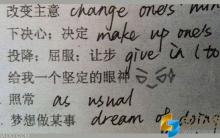 改变主意 change one's min
下决心：决定 make up one's
投降：屈服：让步 give in (to
给我一个坚定的眼神
照常 as usual
梦想做某事 dream of doing